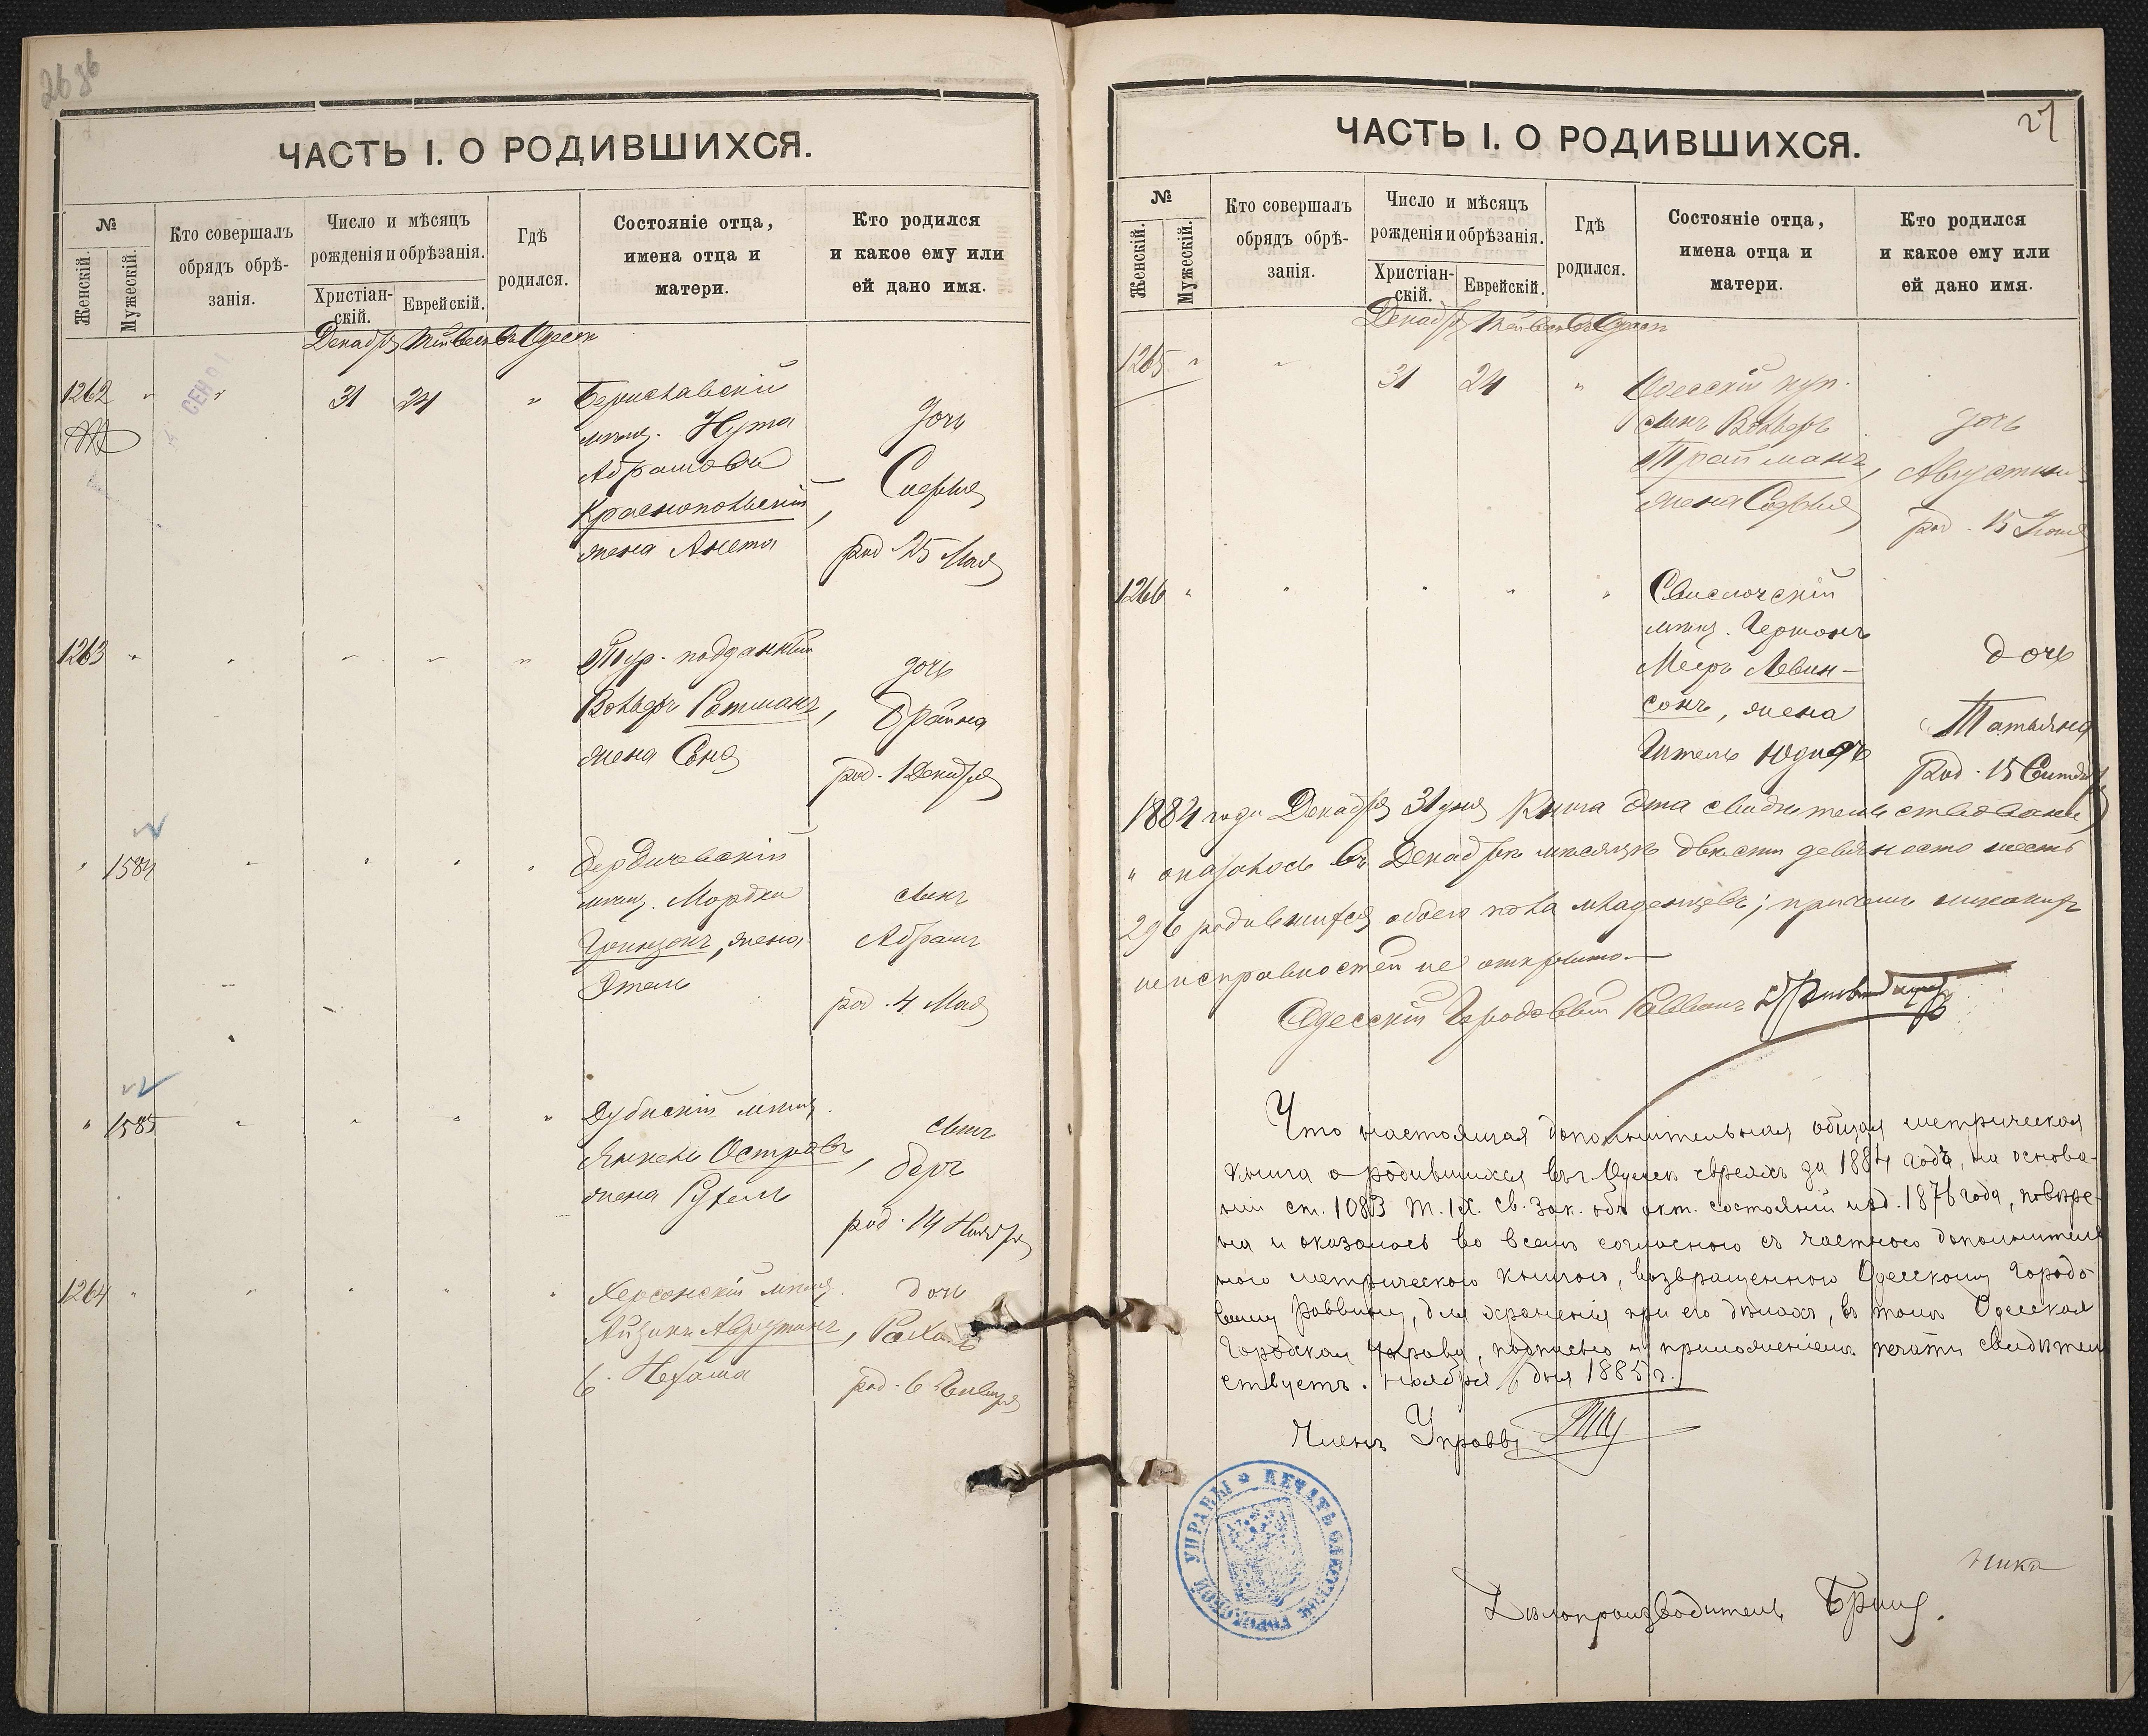 ЧАСТЬ I. О РОДИВШИХСЯ.
№
Женскій.
Мужескій.
Кто совершалъ
обрядъ обрѣ-
занія.
Число и мѣсяцъ
рожденія и обрѣзанія.
Христіан-
скій.
Еврейскій.
Гдѣ
родился.
Состояніе отца,
имена отца и
матери.
Кто родился
и какое ему или
ей дано имя.
Декабрь Тейвесъ въ Одессѣ
1262 " " 31 24 "
Бериславскій
мѣщ. Нута
Абрамовъ
Краснопольскій,
жена Анета
дочь
Софья
род 25 Мая
1263 " " " " "
Тур. подданный
Вольфъ Ротманъ,
жена Соня
дочь
Брайна
род. 1 Декабря
" 1584 " " " "
Бердичевскій
мѣщ. Мордко
жена
Этель
сынъ
Абрамъ
род. 4 Мая
" 1585 " " " "
Дубнскій мѣщ.
Янкель Островъ,
жена Рухель
сынъ
Беръ
род. 14 Ноября
1264 " " " " "
Херсонскій мѣщ.
Айзикъ Авергманъ,
ж. Нехама
дочь
Рахиль
род. 6 Января
27
ЧАСТЬ I. О РОДИВШИХСЯ.
№
Женскій.
Мужескій.
Кто совершалъ
обрядъ обрѣ-
занія.
Число и мѣсяцъ
рожденія и обрѣзанія.
Христіан-
скій.
Еврейскій.
Гдѣ
родился.
Состояніе отца,
имена отца и
матери.
Кто родился
и какое ему или
ей дано имя.
Декабрь Тейвесъ въ Одессѣ
1265 " " 31 24 "
Одесскій куп.
сынъ Вольфъ
Трайманъ,
жена Софья
дочь
Августина
род. 15 Іюня
1266 " " " " "
Свислочскій
мѣщ. Гершонъ
Мееръ Левин-
сонъ, жена
Гитель Юдифь
дочь
Татьяна
род. 15 Сентября
1884 года Декабря 31 дня Книга эта свидѣтельствована
и оказалось въ Декабрѣ мѣсяцѣ двѣсти девяносто шесть
296 родившихся обоего пола младенцевъ; причемъ никакихъ
неисправностей не открыто.
Одесскій Городовый Раввинъ
Что настоящая дополнительная общая метрическая
книга о родившихся въ г. Одессѣ евреяхъ за 1884 годъ, на основа-
ніи ст. 1083 т. IX. Св. Зак. объ акт. состояній изд. 1876 года, повѣре-
на и оказалась во всемъ согласною съ частною дополнитель
ною метрическою книгою, возвращенною Одесскому Городо
вому Раввину, для храненія при его дѣлахъ, въ томъ Одесская
Городская Управа, подписью и приложеніемъ печати свидѣтель
ствуетъ. Ноября 6 дня 1885 г.
Членъ Управы
ПЕЧАТЬ ОДЕССКОЙ ГОРОДСКОЙ УПРАВЫ
Дѣлопроизводитель